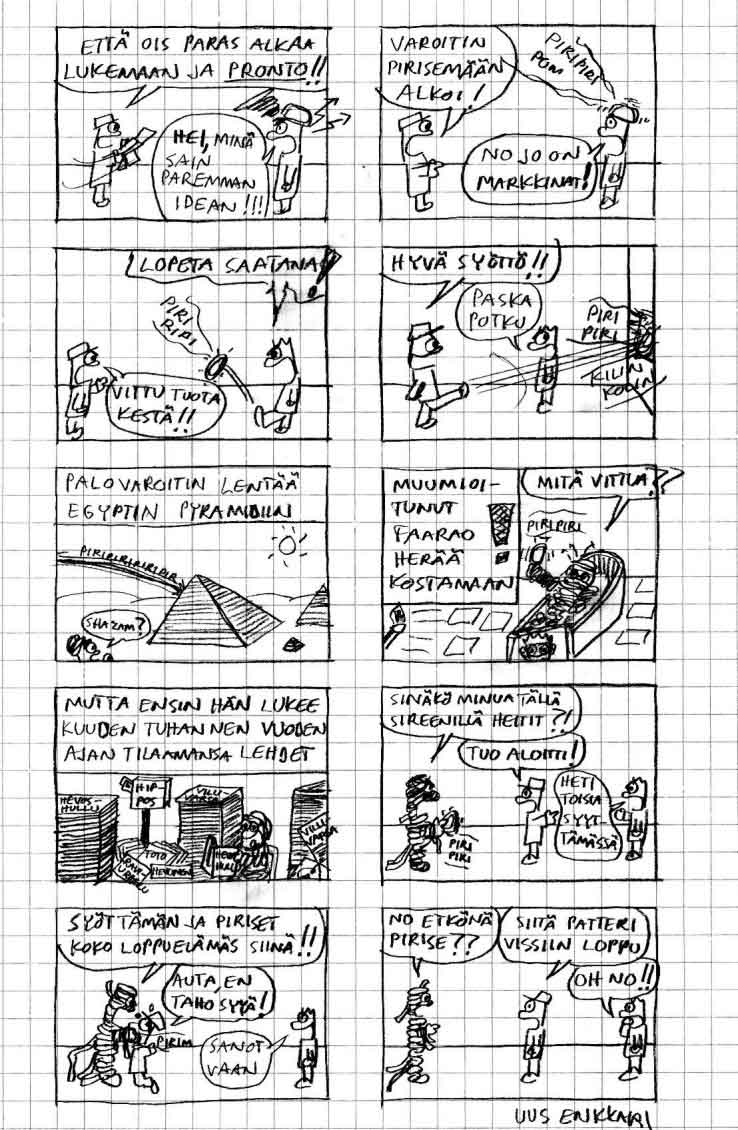 ETTÄ OIS PARAS ALKAA
LUKEMAAN JA PRONTO!!
HEI, MINÄ
SAIN
PAREMMAN
IDEAN!!!
VAROITIN
PIRISEMÄÄN
ALKOI!
PIRIPIRI
POM
NO JO ON
MARKKINAT!
LOPETA SAATANA!
PIRI
RIRI
VITTU TUOTA
KESTÄ!!
HYVÄ SYÖTTÖ!!
PASKA
POTKU
PIRI
PIRI
KILIN
KOLIN
PALOVAROITIN LENTÄÄ
EGYPTIN PYRAMIDIIN
PIRIRIRIRIRIPIR
SHAZAM?
MUUMIOI-
TUNUT
FAARAO
HERÄÄ
KOSTAMAAN
MITÄ VITTUA??
PIRIPIRI
MUTTA ENSIN HÄN LUKEE
KUUDEN TUHANNEN VUODEN
AJAN TILAAMANSA LEHDET
HEVOS
HULLU
HIP-
POS
VILLI
VARSA
TOTO
HEVONEN
VILLI
VARSA
SINÄKÖ MINUA TÄLLÄ
SIREENILLÄ HEITIT?!
TUO ALOITTI!
HETI
TOISIA
SYYT
TÄMÄSSÄ
PIRI
PIRI
SYÖT TÄMÄN JA PIRISET
KOKO LOPPUELÄMÄS SIINÄ!!
AUTA, EN
TAHO SYÄ!
PIRIM
SANOT
VAAN
NO ETKÖNÄ
PIRISE??
SIITÄ PATTERI
VISSIIN LOPPU
OH NO!!
UUS ENKKARI